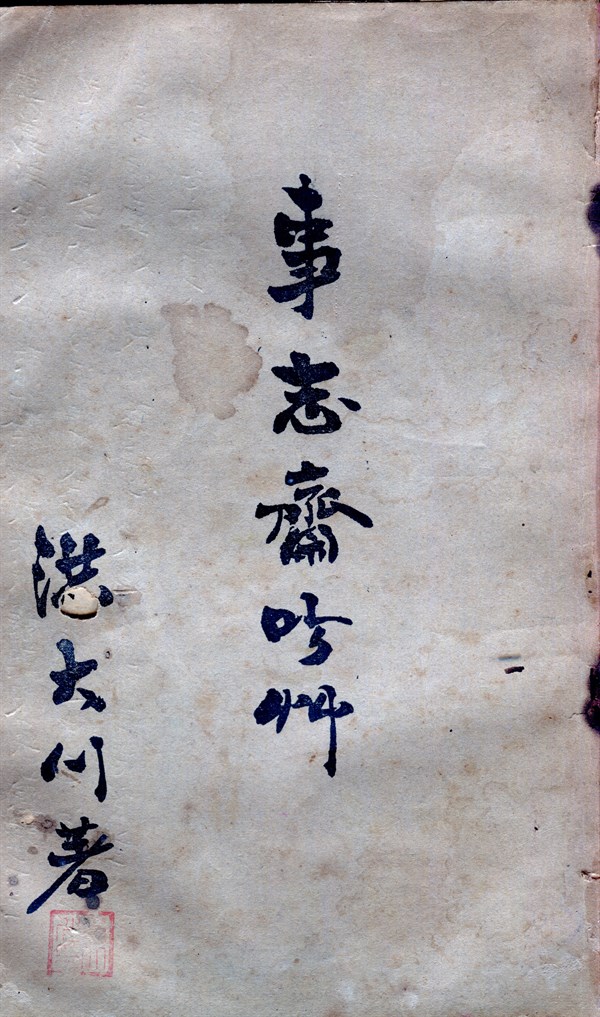 事志齋吟艸
洪大川著